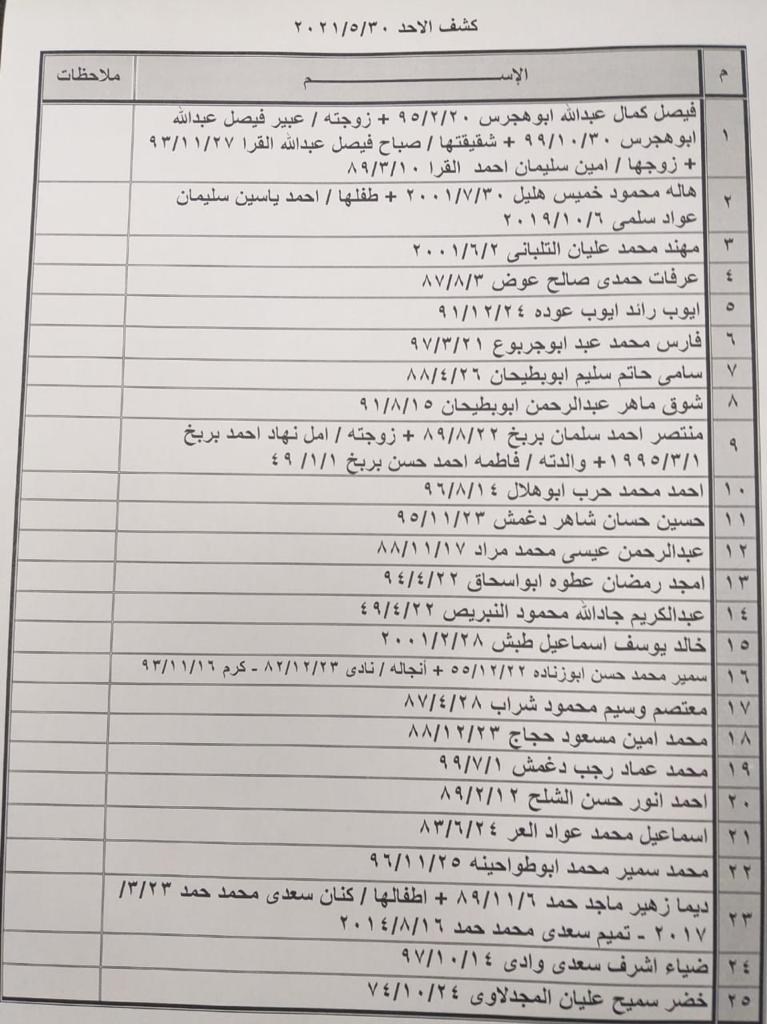 كشف الاحد ٢٠٢١/٥/٣٠
م الإســـــــــم ملاحظات
١ فيصل كمال عبدالله ابوهجرس ٩٥/٢/٢٠ + زوجته / عبير فيصل عبدالله
ابوهجرس ٩٩/١٠/٣٠ + شقيقتها / صباح فيصل عبدالله القرا ٩٣/١١/٢٧
+ زوجها / امين سليمان احمد القرا ٨٩/٣/١٠
٢ هاله محمود خميس هليل ٢٠٠١/٧/٣٠ + طفلها / احمد ياسين سليمان
عواد سلمى ٢٠١٩/١٠/٦
٣ مهند محمد عليان التلبانى ٢٠٠١/٦/٢
٤ عرفات حمدى صالح عوض ٨٧/٨/٣
٥ ايوب رائد ايوب عوده ٩١/١٢/٢٤
٦ فارس محمد عبد ابوجربوع ٩٧/٣/٢١
٧ سامى حاتم سليم ابوبطيحان ٨٨/٤/٢٦
٨ شوق ماهر عبدالرحمن ابوبطيحان ٩١/٨/١٥
٩ منتصر احمد سلمان بربخ ٨٩/٨/٢٢ + زوجته / امل نهاد احمد بربخ
١٩٩٥/٣/١+ والدته / فاطمه احمد حسن بربخ ٤٩ /١/١
١٠ احمد محمد حرب ابوهلال ٩٦/٨/١٤
١١ حسين حسان شاهر دغمش ٩٥/١١/٢٣
١٢ عبدالرحمن عيسى محمد مراد ٨٨/١١/١٧
١٣ امجد رمضان عطوه ابواسحاق ٩٤/٤/٢٢
١٤ عبدالكريم جادالله محمود النبريص ٤٩/٤/٢٢
١٥ خالد يوسف اسماعيل طبش ٢٠٠١/٢/٢٨
١٦ سمير محمد حسن ابوزناده ٥٥/١٢/٢٢ + أنجاله / نادى ٨٢/١٢/٢٣ - كرم ٩٣/١١/١٦
١٧ معتصم وسيم محمود شراب ٨٧/٤/٢٨
١٨ محمد امين مسعود حجاج ٨٨/١٢/٢٣
١٩ محمد عماد رجب دغمش ٩٩/٧/١
٢٠ احمد انور حسن الشلح ٨٩/٢/١٢
٢١ اسماعيل محمد عواد العر ٨٣/٦/٢٤
٢٢ محمد سمير محمد ابوطواحينه ٩٦/١١/٢٥
٢٣ ديما زهير ماجد حمد ٨٩/١١/٦ + اطفالها / كنان سعدى محمد حمد ٣/٢٣/
٢٠١٧ - تميم سعدى محمد حمد ٢٠١٤/٨/١٦
٢٤ ضياء اشرف سعدى وادى ٩٧/١٠/١٤
٢٥ خضر سميح عليان المجدلاوى ٧٤/١٠/٢٤